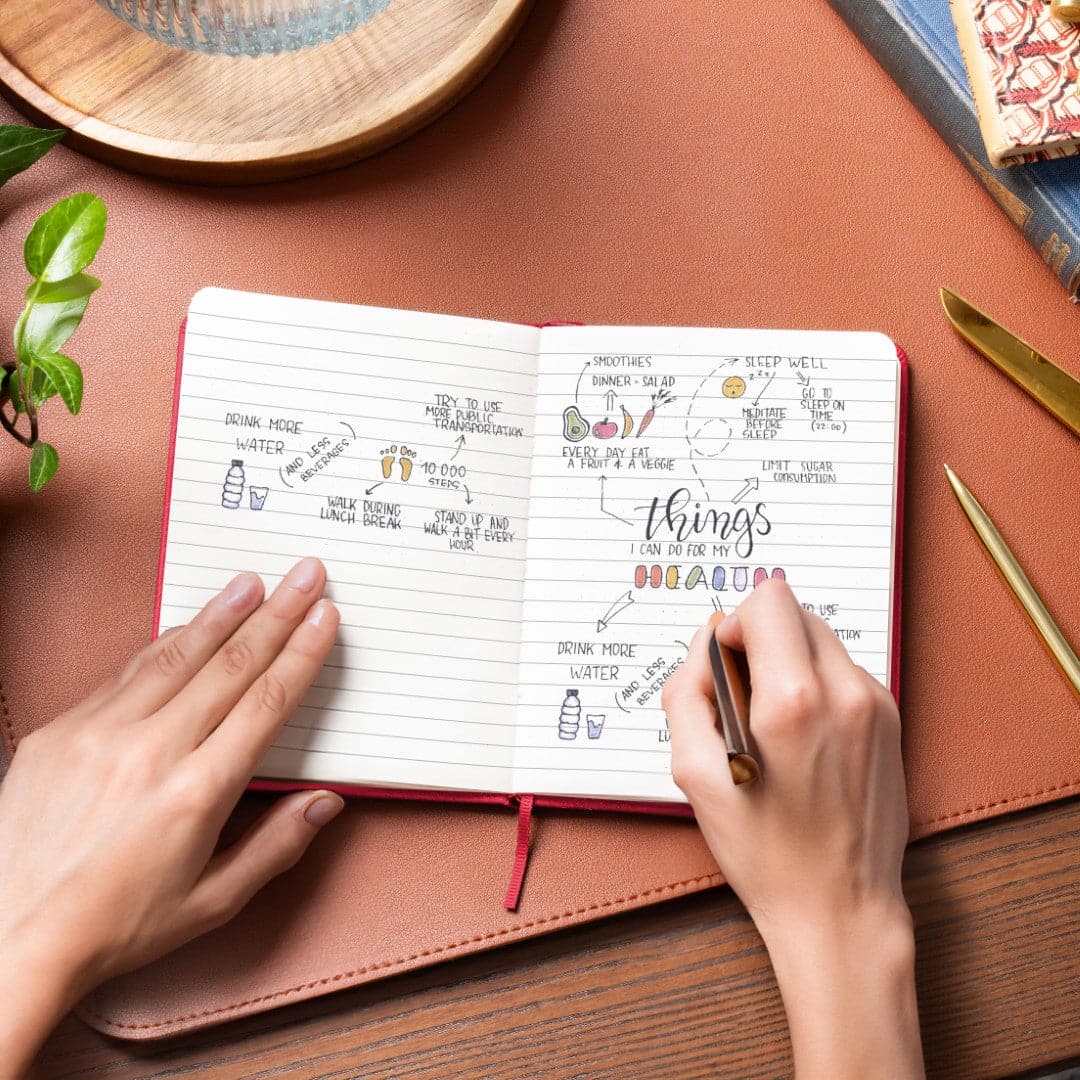 TRY TO USE
MORE PUBLIC
TRANSPORTATION
DRINK MORE
WATER
(AND LESS
BEVERAGES)
10 000
STEPS
WALK DURING
LUNCH BREAK
STAND UP AND
WALK A BIT EVERY
HOUR
SMOOTHIES
DINNER = SALAD
EVERY DAY EAT
A FRUIT & A VEGGIE
SLEEP WELL
zzzz
MEDITATE
BEFORE
SLEEP
GO TO
SLEEP ON
TIME
(22:00)
LIMIT SUGAR
CONSUMPTION
things
I CAN DO FOR MY
HEALTH
TO USE
DRINK MORE
WATER
(AND LESS
BEVERAGES